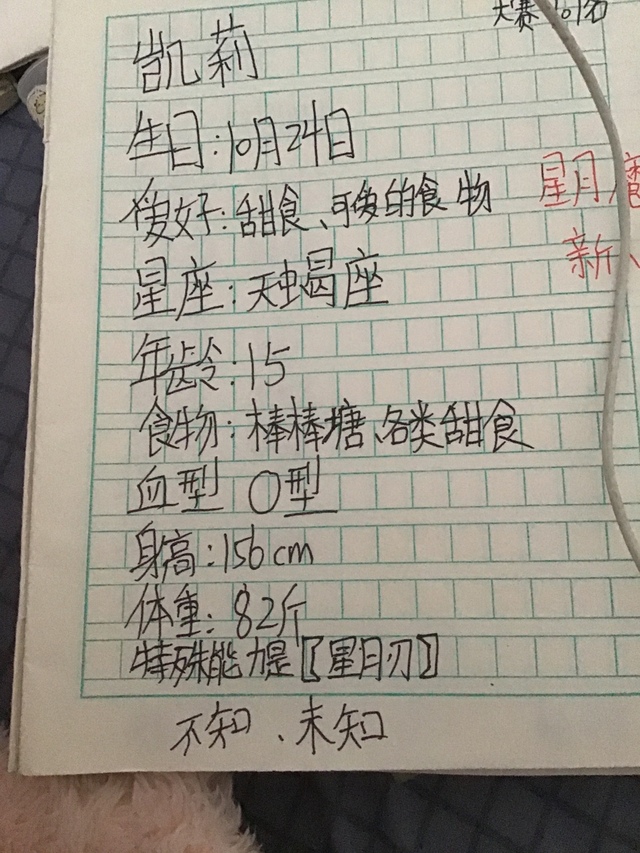 大赛
凯莉
生日:10月24日
爱好:甜食、可爱的食物
星月魔
新、
星座:天蝎座
年龄:15
食物:棒棒塘、各类甜食
血型 O型
身高:156cm
体重:82斤
特殊能力是〖星月刃〗
不知、未知